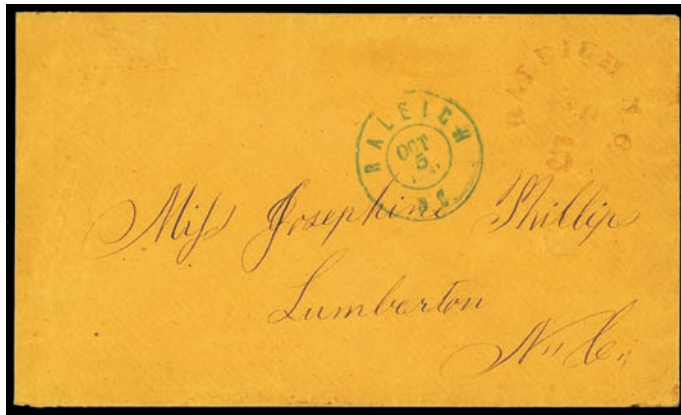 RALEIGH N C
5
RALEIGH
OCT
5
N.C.
Miss Josephine Phillips
Lumberton
N. C.